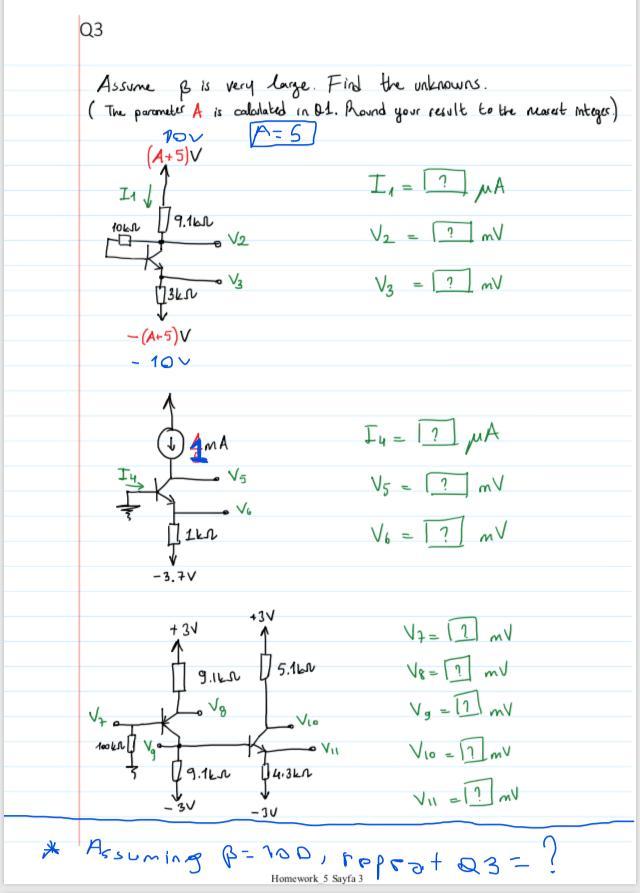 Q3
Assume β is very large. Find the unknowns.
( The parameter A is calculated in Q1. Round your result to the nearest integer.)
10V
A=5
(A+5)V
I1
9.1kΩ
10kΩ
V2
V3
3kΩ
-(A+5)V
- 10V
I1 = ? μA
V2 = ? mV
V3 = ? mV
1mA
I4
V5
V6
1kΩ
-3.7V
I4 = ? μA
V5 = ? mV
V6 = ? mV
+3V
+3V
9.1kΩ
5.1kΩ
V7
V8
V10
100kΩ
V9
V11
9.1kΩ
4.3kΩ
-3V
-3V
V7 = ? mV
V8 = ? mV
V9 = ? mV
V10 = ? mV
V11 = ? mV
* Assuming β=100, repeat Q3 = ?
Homework_5 Sayfa 3